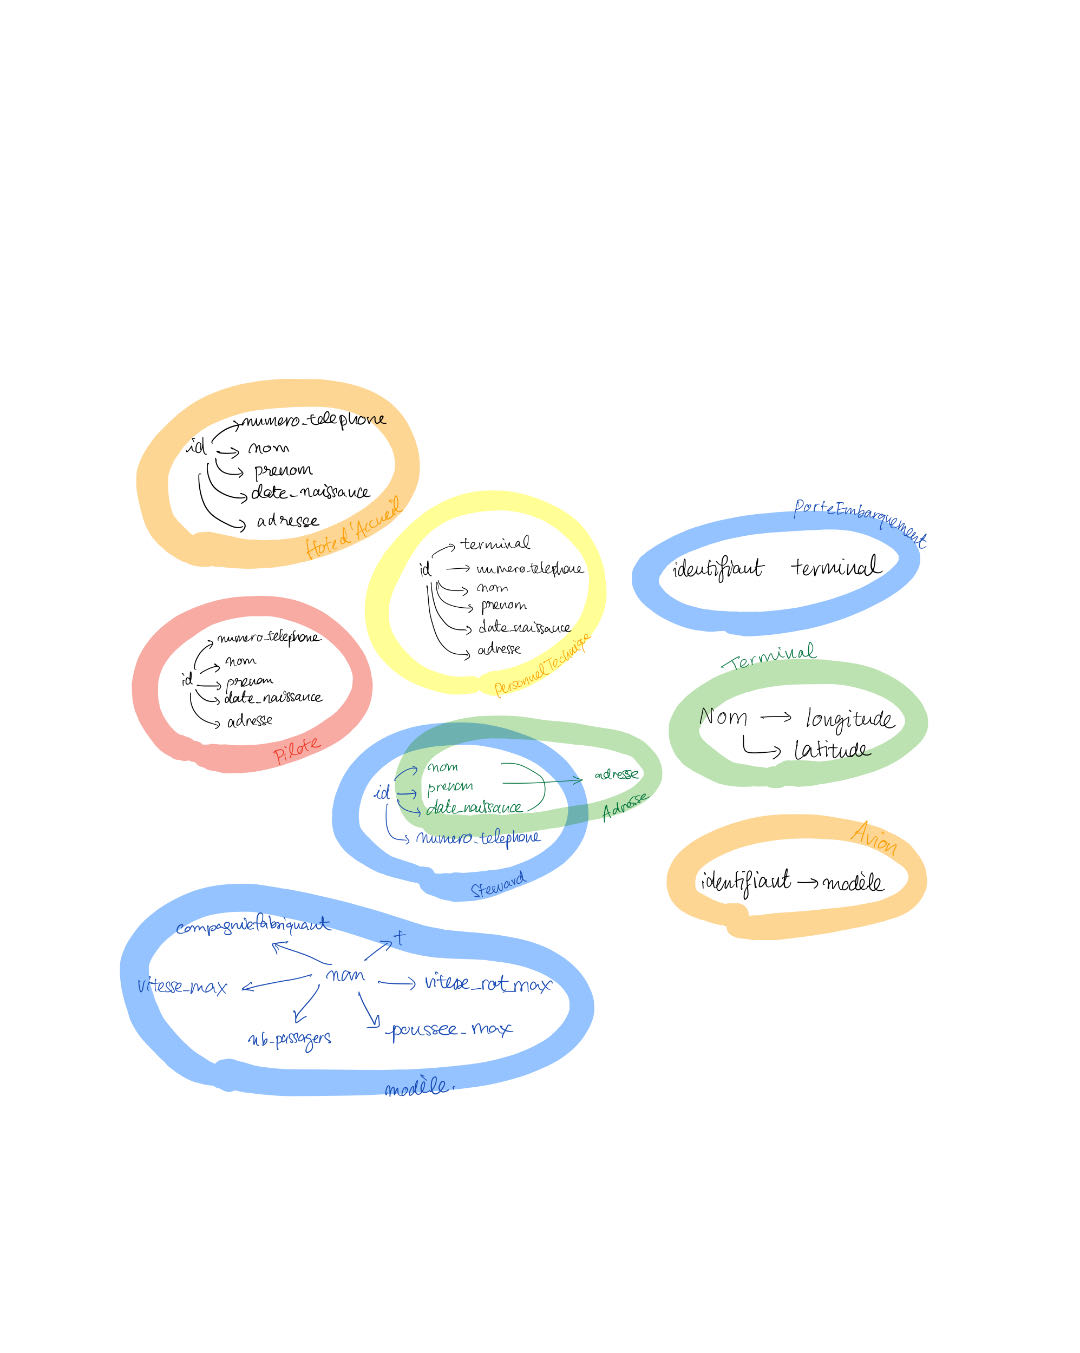 numero_telephone
id
nom
prenom
date_naissance
adresse
Hote d'Accueil
terminal
id
numero_telephone
nom
prenom
date_naissance
adresse
Personnel Technique
PorteEmbarquement
identifiant terminal
numero_telephone
nom
id
prenom
date_naissance
adresse
Pilote
Terminal
Nom longitude
latitude
nom
id
prenom
date_naissance
adresse
Adresse
numero_telephone
Steward
Avion
identifiant modèle
compagniefabriquant
nom
vitesse_max
vitesse_rot_max
nb_passagers
poussee_max
modèle.